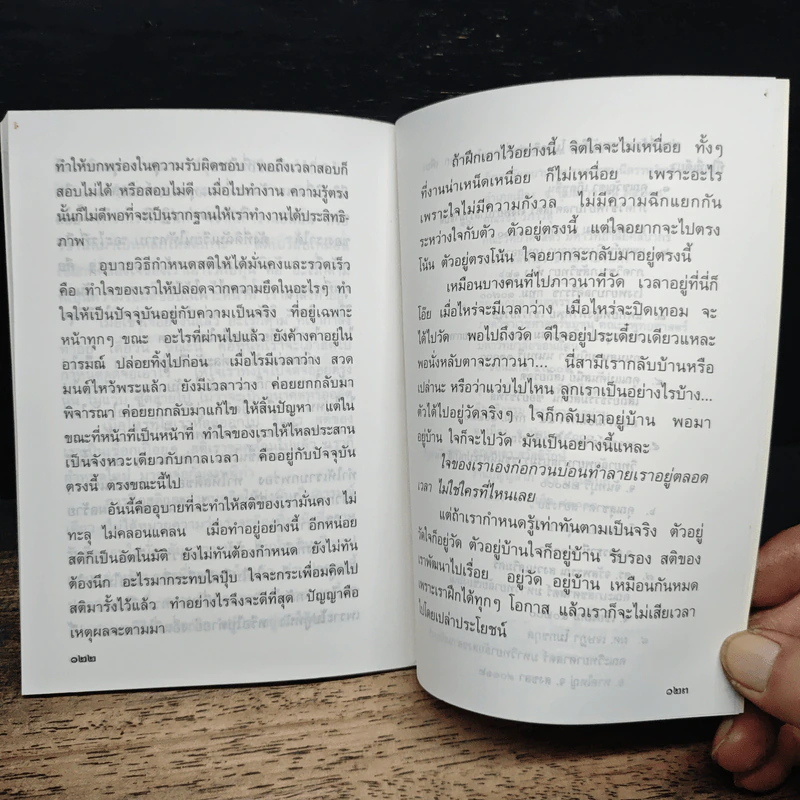 ทำให้บกพร่องในความรับผิดชอบ พอถึงเวลาสอบก็
สอบไม่ได้ หรือสอบไม่ดี เมื่อไปทำงาน ความรู้ตรง
นั้นก็ไม่ดีพอที่จะเป็นรากฐานให้เราทำงานได้ประสิทธิ-
ภาพ
อุบายวิธีกำหนดสติให้ได้มั่นคงและรวดเร็ว
คือ ทำใจของเราให้ปลอดจากความยึดในอะไรๆ ทำ
ใจให้เป็นปัจจุบันอยู่กับความเป็นจริง ที่อยู่เฉพาะ
หน้าทุกๆ ขณะ อะไรที่ผ่านไปแล้ว ยังค้างคาอยู่ใน
อารมณ์ ปล่อยทิ้งไปก่อน เมื่อไรมีเวลาว่าง สวด
มนต์ไหว้พระแล้ว ยังมีเวลาว่าง ค่อยยกกลับมา
พิจารณา ค่อยยกกลับมาแก้ไข ให้สิ้นปัญหา แต่ใน
ขณะที่หน้าที่เป็นหน้าที่ ทำใจของเราให้ไหลประสาน
เป็นจังหวะเดียวกับกาลเวลา คืออยู่กับปัจจุบัน
ตรงนี้ ตรงขณะนี้ไป
อันนี้คืออุบายที่จะทำให้สติของเรามั่นคง ไม่
ทะลุ ไม่คลอนแคลน เมื่อทำอยู่อย่างนี้ อีกหน่อย
สติก็เป็นอัตโนมัติ ยังไม่ทันต้องกำหนด ยังไม่ทัน
ต้องนึก อะไรมากระทบใจปุ๊บ ใจจะกระเพื่อมคิดไป
สติมารั้งไว้แล้ว ทำอย่างไรจึงจะดีที่สุด ปัญญาคือ
เหตุผลจะตามมา
๑๒๒
ถ้าฝึกเอาไว้อย่างนี้ จิตใจจะไม่เหนื่อย ทั้งๆ
ที่งานน่าเหน็ดเหนื่อย ก็ไม่เหนื่อย เพราะอะไร
เพราะใจไม่มีความกังวล ไม่มีความฉีกแยกกัน
ระหว่างใจกับตัว ตัวอยู่ตรงนี้ แต่ใจอยากจะไปตรง
โน้น ตัวอยู่ตรงโน้น ใจอยากจะกลับมาอยู่ตรงนี้
เหมือนบางคนที่ไปภาวนาที่วัด เวลาอยู่ที่นี่ก็
โอ๊ย เมื่อไหร่จะมีเวลาว่าง เมื่อไหร่จะปิดเทอม จะ
ได้ไปวัด พอไปถึงวัด ดีใจอยู่ประเดี๋ยวเดียวแหละ
พอนั่งหลับตาจะภาวนา... นี่สามีเรากลับบ้านหรือ
เปล่านะ หรือว่าแว่บไปไหน ลูกเราเป็นอย่างไรบ้าง...
ตัวได้ไปอยู่วัดจริงๆ ใจก็กลับมาอยู่บ้าน พอมา
อยู่บ้าน ใจก็จะไปวัด มันเป็นอย่างนี้แหละ
ใจของเราเองก่อกวนบ่อนทำลายเราอยู่ตลอด
เวลา ไม่ใช่ใครที่ไหนเลย
แต่ถ้าเรากำหนดรู้เท่าทันตามเป็นจริง ตัวอยู่
วัดใจก็อยู่วัด ตัวอยู่บ้านใจก็อยู่บ้าน รับรอง สติของ
เราพัฒนาไปเรื่อย อยู่วัด อยู่บ้าน เหมือนกันหมด
เพราะเราฝึกได้ทุกๆ โอกาส แล้วเราก็จะไม่เสียเวลา
ไปโดยเปล่าประโยชน์
๑๒๓